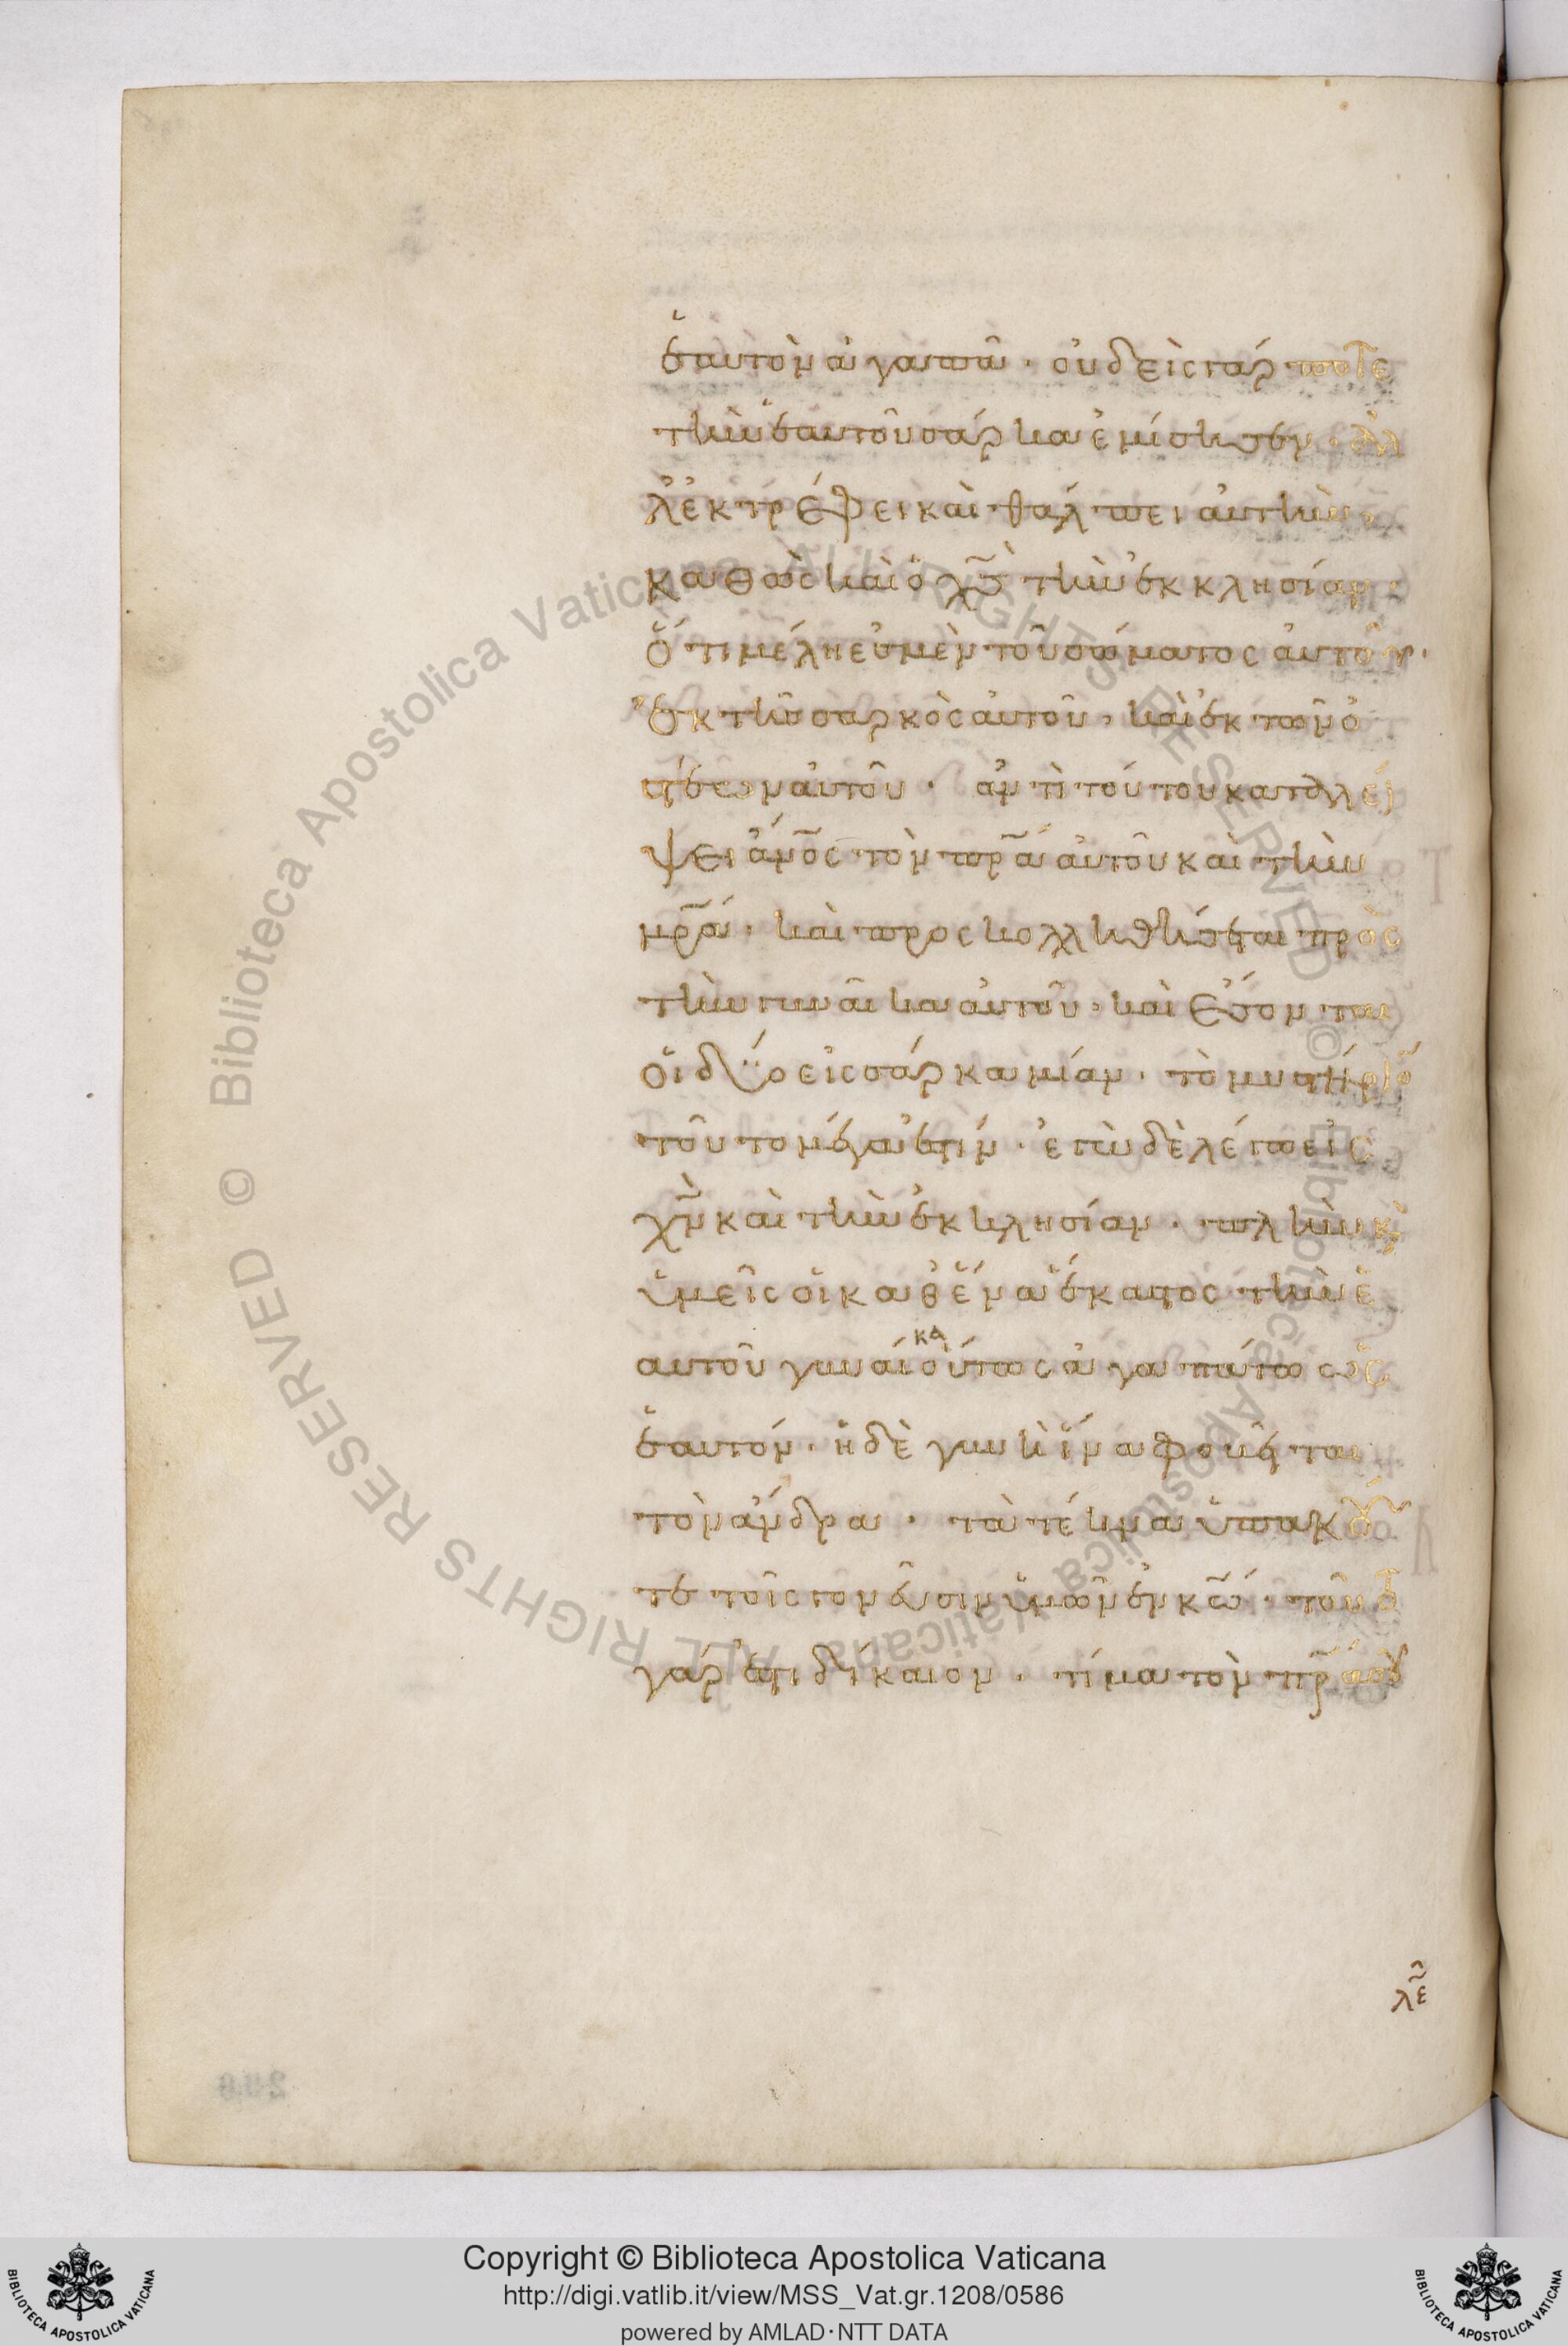 ἑαυτὸν ἀγαπᾶ · οὐδεὶς γάρ ποτε
τὴν ἑαυτοῦ σάρκα ἐμίσησεν · ἀλ
λ' ἐκτρέφει καὶ θάλπει αὐτὴν ·
καθὼς καὶ ὁ χς τὴν ἐκκλησίαν ·
ὅτι μέλη ἐσμὲν τοῦ σώματος αὐτοῦ ·
ἐκ τῆς σαρκὸς αὐτοῦ · καὶ ἐκ τῶν ὀ
στέων αὐτοῦ · ἀντὶ τούτου καταλεί
ψει ἄνος τὸν πρα αὐτοῦ καὶ τὴν
μρα · καὶ προσκολληθήσεται πρὸς
τὴν γυναῖκα αὐτοῦ · καὶ ἔσονται
οἱ δύο εἰς σάρκα μίαν · τὸ μυστήριον
τοῦτο μέγα ἐστίν · ἐγὼ δὲ λέγω εἰς
χν καὶ τὴν ἐκκλησίαν · πλὴν κὶ
ὑμεῖς οἱ καθ' ἕνα ἕκαστος τὴν ἑ
αυτοῦ γυναίκα οὕτως ἀγαπάτω ὡς
ἑαυτόν · ἡ δὲ γυνὴ ἵνα φοβῆται
τὸν ἄνδρα · τὰ τέκνα ὑπακούε
τε τοῖς γονεῦσιν ὑμῶν ἐν κω · τοῦτο
γάρ ἐστι δίκαιον · τίμα τὸν πρα σου
λε
Copyright © Biblioteca Apostolica Vaticana
http://digi.vatlib.it/view/MSS_Vat.gr.1208/0586
powered by AMLAD·NTT DATA
BIBLIOTECA APOSTOLICA VATICANA
BIBLIOTECA APOSTOLICA VATICANA
Biblioteca Apostolica Vaticana ALL RIGHTS RESERVED © Biblioteca Apostolica Vaticana ALL RIGHTS RESERVED ©